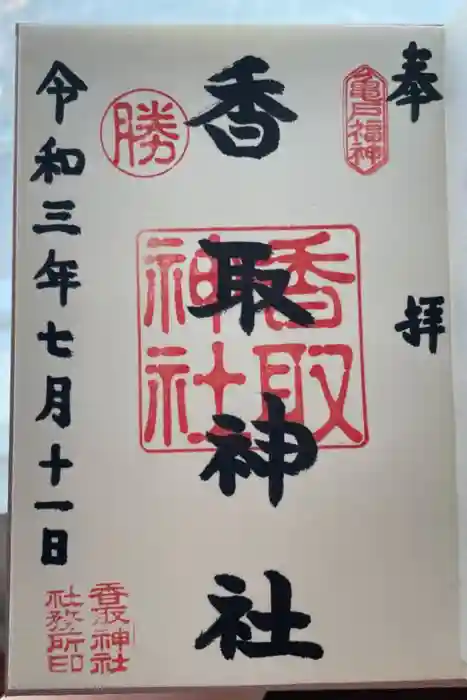 奉拝
亀戸福神
香取神社
香取神社
勝
令和三年七月十一日
香取神社
社務所印